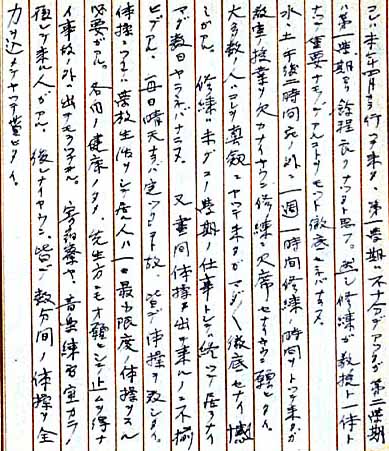 コレハ本年四月ヨリ行ツテ来タ。第一学期ハ不十分デアツタガ第二学期
ハ第一学期ヨリ餘程良クナツタト思フ。然シ修練ガ教授ト一体ト
ナツテ重要ナモノデアルコトヲモツト徹底セネバナラヌ。
水、土午後二時間宛ノ外ニ一週一時間修練ノ時間ヲトツテ来タガ
教室授業ヲ欠カサナイヤウニ修練ニ欠席セナイヤウ願ヒタイ。
大多数ノ人ハコレヲ真観ニヤツテ来タガマダ徹底セナイ憾
ミガアル。修練ハ未ダコノ学期ノ仕事トシテハ終ツテ居ラナイ
マダ数日ヤラネバナラヌ。又、昼間体操ノ出テ来ルノニ不揃
ヒデアル。毎日晴天ナラバ定マツタ故、皆デ体操ヲ致シタイ。
体操ニツイテハ学校生活ヲシテ居ル人ハ一日最少限度ノ体操ヲスル
必要ガアル。各自ノ健康ノタメ、先生方ニモオ願ヒシテ止ムヲ得ナ
イ事故ノ外ハ出テモラフ。寄宿寮ヤ、音楽練習室カラノ
後レテ来ル人ガアル。後レナイヤウニ、皆デ数分間ノ体操ヲ全
力ヲ込メテヤツテ貰ヒタイ。